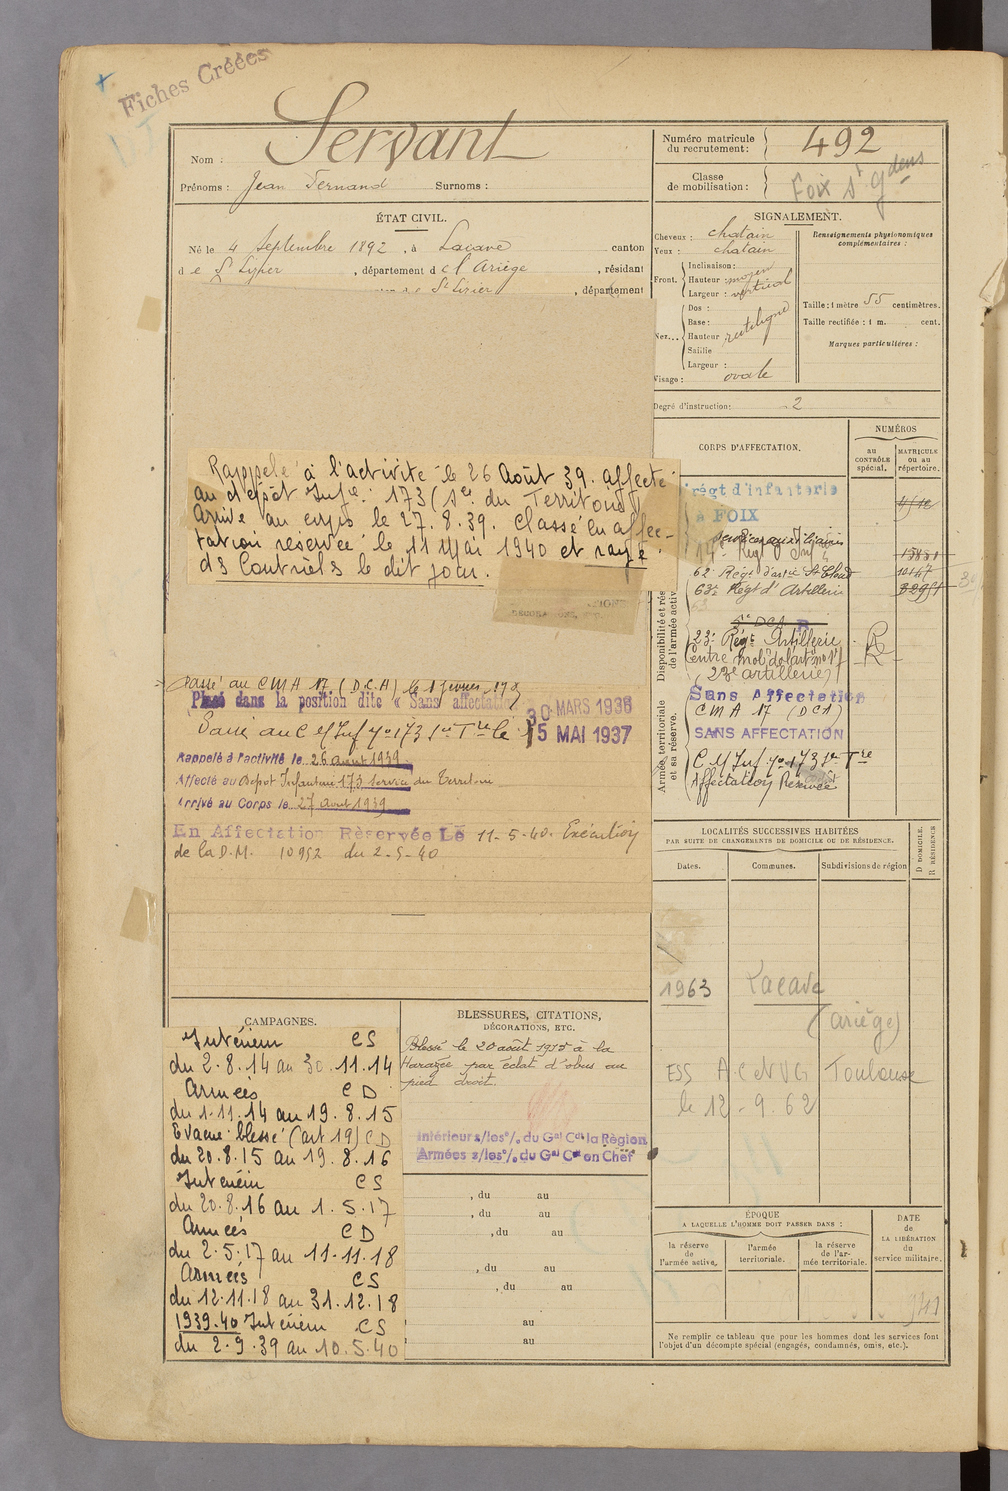 Fiches Créées
Nom : Servant
Prénoms : Jean Fernand Surnoms :
Numéro matricule
du recrutement : 492
Classe
de mobilisation : Foix St Gdens
ÉTAT CIVIL.
Né le 4 Septembre 1892, à Lacave canton
de St Lizier, département de l'Ariège, résidant
St Lizier, département
SIGNALEMENT.
Cheveux : chatain
Yeux : chatain
Front.
Inclinaison :
Hauteur : moyen
Largeur : vertical
Nez...
Dos :
Base :
Hauteur rectiligne
Saillie
Largeur :
Visage : ovale
Renseignements physionomiques
complémentaires :
Taille : 1 mètre 55 centimètres.
Taille rectifiée : 1 m. cent.
Marques particulières :
Degré d'instruction : 2
Rappelé à l'activité le 26 Août 39. affecté
au dépôt Infie 173 (Sce du Territoire)
Arrivé au corps le 27.8.39. Classé en affec-
tation réservée le 11 Mai 1940 et rayé
ds Contrôles le dit jour.
Passé au CMA 17 (D.C.A) le 1 janvier
Placé dans la position dite « Sans affectation
30 MARS 1936
15 MAI 1937
Rappelé à l'activité le 26 août 1939
Affecté au Dépot Infanterie 173 Service du Territoire
Arrivé au Corps le 27 Août 1939
En Affectation Réservée Le 11-5-40. Exécution
de la D.M. 10952 du 2-5-40
CORPS D'AFFECTATION.
NUMÉROS
au
CONTRÔLE
spécial.
MATRICULE
ou au
répertoire.
régt d'infanterie
à FOIX
services auxiliaires
14e Régt d'Inf
62e Régt d'artie St Cloud
63e Régt d'Artillerie
23e Régt Artillerie
Centre mob. d'art no 17
(23e artillerie)
Sans Affectation
CMA 17 (DCA)
SANS AFFECTATION
C M Inf. no 173 Sce Tre
Affectation Réservée
Disponibilité et rés
de l'armée activ
Armée territoriale
et sa réserve.
LOCALITÉS SUCCESSIVES HABITÉES
PAR SUITE DE CHANGEMENTS DE DOMICILE OU DE RÉSIDENCE.
Dates.
Communes.
Subdivisions de région
D DOMICILE.
R RÉSIDENCE
1963 Lacave
(Ariège)
ESS A C N V G Toulouse
le 12-9.62
CAMPAGNES.
Intérieur CS
du 2.8.14 au 30.11.14
Armées CD
du 1.11.14 au 19.8.15
Evacué blessé (art 19) CD
du 20.8.15 au 19.8.16
Intérieur CS
du 20.8.16 au 1.5.17
Armées CD
du 2.5.17 au 11-11.18
Armées CS
du 12.11.18 au 31.12.18
1939.40 Intérieur CS
du 2.9.39 au 10.5.40
BLESSURES, CITATIONS,
DÉCORATIONS, ETC.
Blessé le 20 août 1915 à la
Harazée par éclat d'obus au
pied droit.
Intérieur s/les % du Gal Cdt la Région
Armées s/les % du Gal Ct en Chef
, du au
, du au
, du au
, du au
, du au
au
au
ÉPOQUE
A LAQUELLE L'HOMME DOIT PASSER DANS :
la réserve
de
l'armée active.
l'armée
territoriale.
la réserve
de l'ar-
mée territoriale.
DATE
de
LA LIBÉRATION
du
service militaire.
Ne remplir ce tableau que pour les hommes dont les services font
l'objet d'un décompte spécial (engagés, condamnés, omis, etc.).